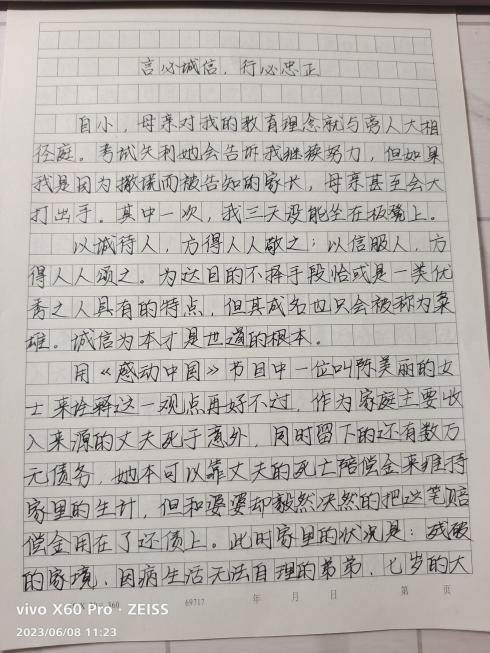 言必诚信，行必忠正
自小，母亲对我的教育理念就与离人大相
径庭。考试失利她会告诉我继续努力，但如果
我是因为撒谎而被告知的家长，母亲甚至会大
打出手。其中一次，我三天没能坐在板凳上。
以诚待人，方得人人敬之；以信服人，方
得人人颂之。为达目的不择手段恰或是一类优
秀之人具有的特点，但其成名也只会被称为枭
雄。诚信为本才是世道的根本。
用《感动中国》节目中一位叫陈美丽的女
士来诠释这一观点再好不过，作为家庭主要收
入来源的丈夫死于意外，同时留下的还有数万
元债务，她本可以靠丈夫的死亡赔偿金来维持
家里的生计，但和婆婆却毅然决然的把这笔赔
偿金用在了还债上。此时家里的状况是：残破
的家境，因病生活无法自理的弟弟，七岁的大
69717 年 月 日 第 页
vivo X60 Pro · ZEISS
2023/06/08 11:23